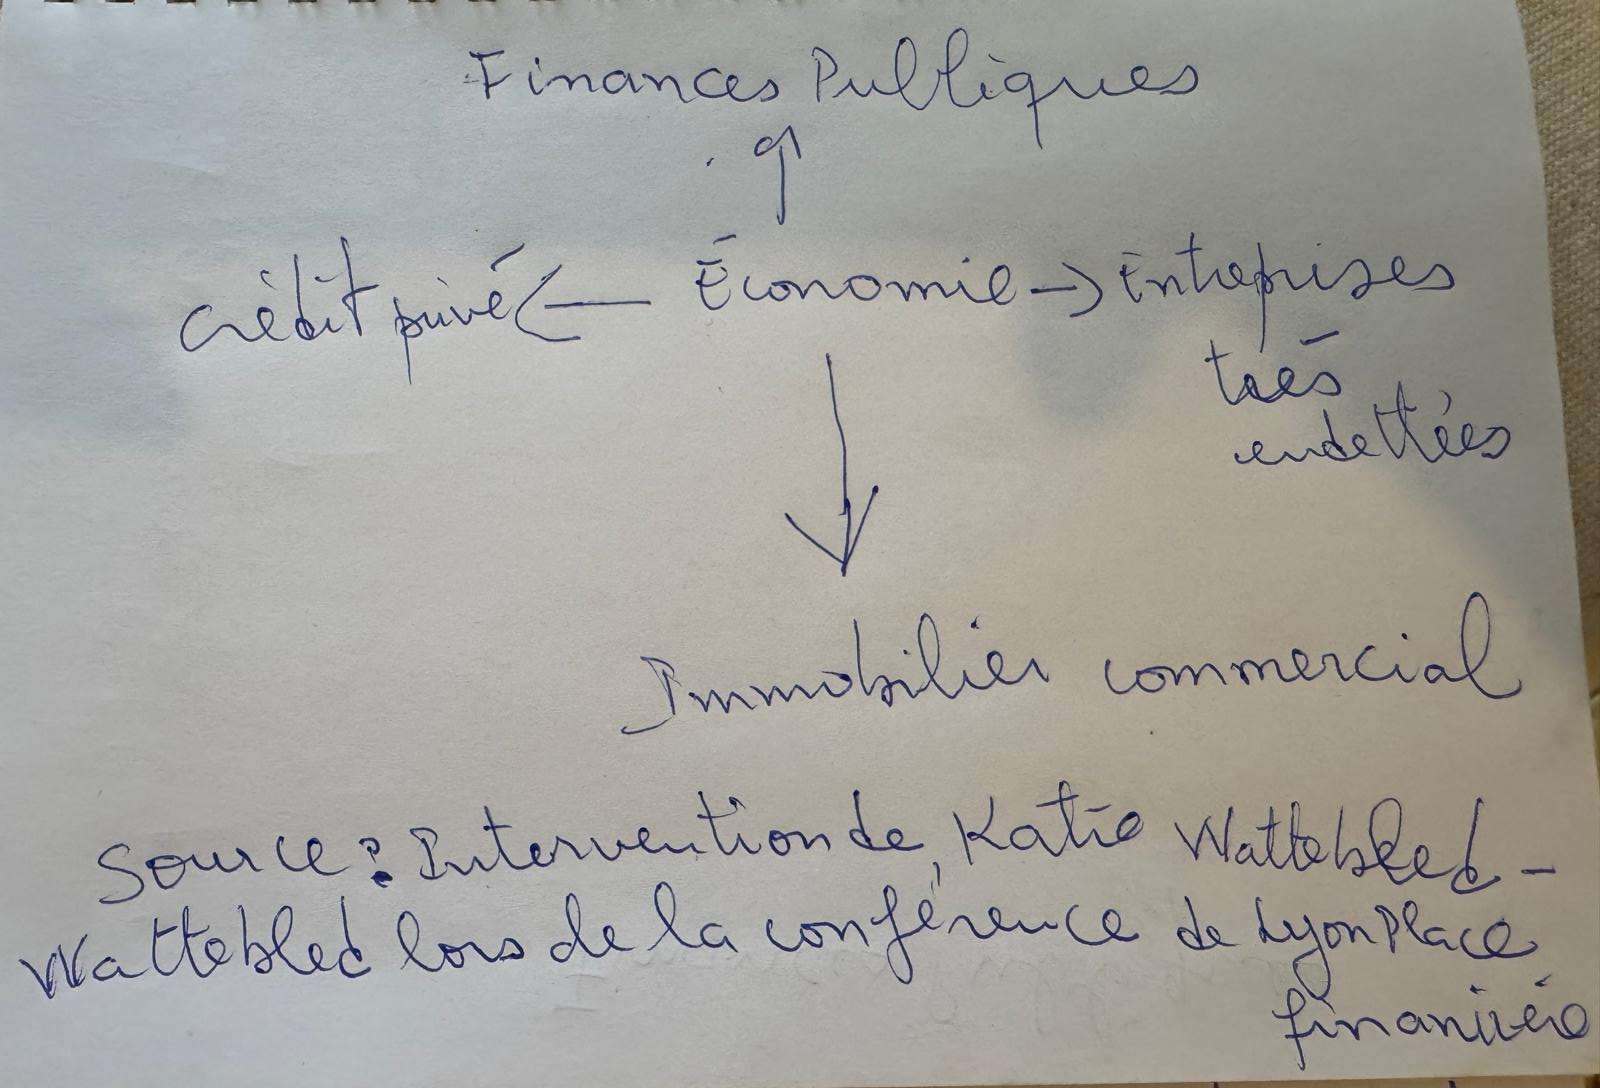 Finances Publiques
Crédit privé ← Économie → Entreprises
très
endettées
Immobilier commercial
Source : Intervention de Katie Wattebled -
Wattebled lors de la conférence de Lyon Place
financière